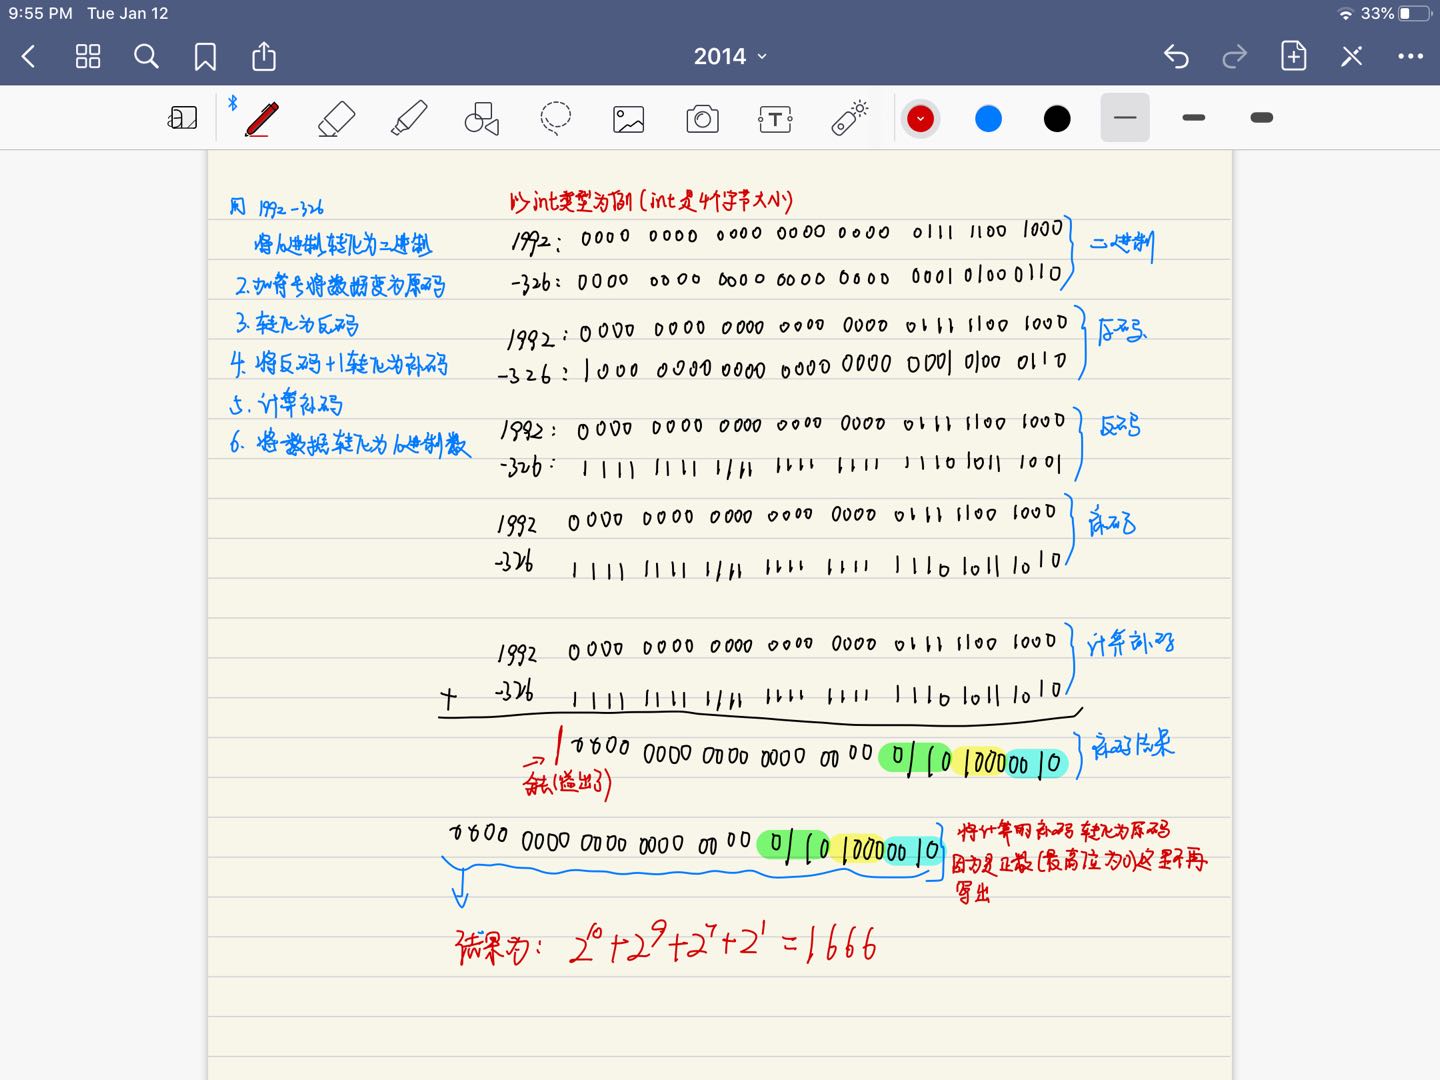 9:55 PM Tue Jan 12
33%
2014
用 1992 -326
以int类型为例(int是4个字节大小)
将10进制转化为二进制
2.加符号将数据变为原码
3.转化为反码
4.将反码+1转化为补码
5.计算补码
6.将数据转化为10进制数
1992: 0000 0000 0000 0000 0000 0111 1100 1000
-326: 0000 0000 0000 0000 0000 0001 0100 0110
二进制
1992: 0000 0000 0000 0000 0000 0111 1100 1000
-326: 1000 0000 0000 0000 0000 0001 0100 0110
1992: 0000 0000 0000 0000 0000 0111 1100 1000
-326: 1111 1111 1111 1111 1111 1110 1011 1001
反码
1992 0000 0000 0000 0000 0000 0111 1100 1000
-326 1111 1111 1111 1111 1111 1110 1011 1010
补码
1992 0000 0000 0000 0000 0000 0111 1100 1000
+ -326 1111 1111 1111 1111 1111 1110 1011 1010
计算补码
1 0000 0000 0000 0000 0000 0110 1000 0010
补码结果
舍去(溢出了)
0000 0000 0000 0000 0000 0110 1000 0010
将计算的补码转化为原码
因为是正数(最高位为0)这里不再
写出
结果为: 2^10+2^9+2^7+2^1=1666